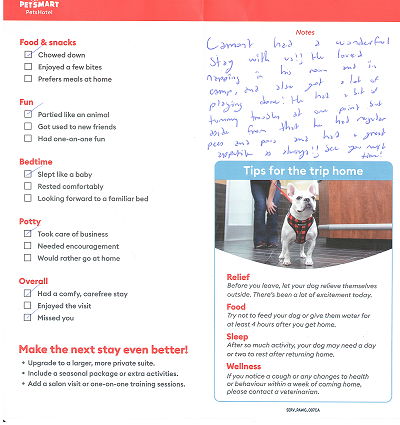 PETSMART
PetsHotel
Food & snacks
Chowed down
Enjoyed a few bites
Prefers meals at home
Fun
Partied like an animal
Got used to new friends
Had one-on-one fun
Bedtime
Slept like a baby
Rested comfortably
Looking forward to a familiar bed
Potty
Took care of business
Needed encouragement
Would rather go at home
Overall
Had a comfy, carefree stay
Enjoyed the visit
Missed you
Make the next stay even better!
• Upgrade to a larger, more private suite.
• Include a seasonal package or extra activities.
• Add a salon visit or one-on-one training sessions.
Notes
had a wonderful
stay with us!! He loved
napping in his room and in
camp, and also got a lot of
playing done! He had a bit of
tummy trouble at one point but
aside from that he had regular
pees and poos and had a great
appetite as always!! See you next
time!
Tips for the trip home
Relief
Before you leave, let your dog relieve themselves
outside. There's been a lot of excitement today.
Food
Try not to feed your dog or give them water for
at least 4 hours after you get home.
Sleep
After so much activity, your dog may need a day
or two to rest after returning home.
Wellness
If you notice a cough or any changes to health
or behaviour within a week of coming home,
please contact a veterinarian.